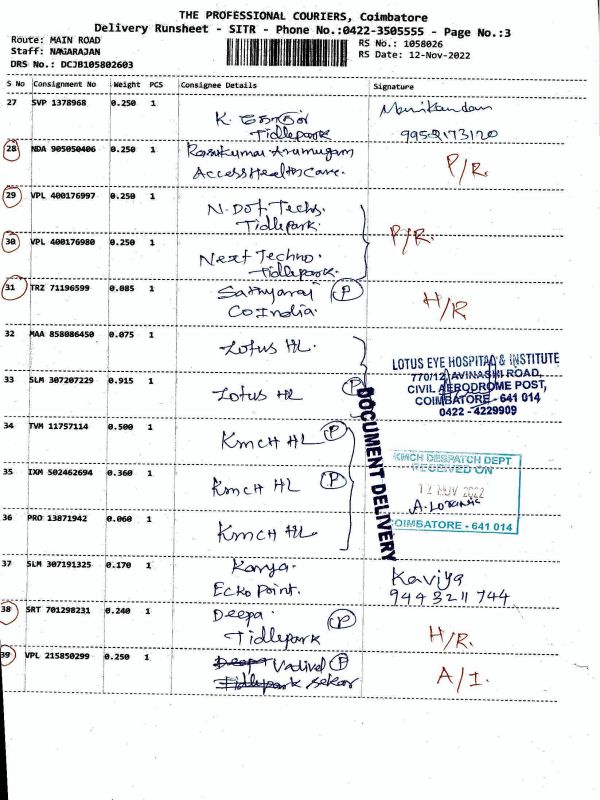 THE PROFESSIONAL COURIERS, Coimbatore
Delivery Runsheet - SITR - Phone No.:0422-3505555 - Page No.:3
Route: MAIN ROAD
RS No.: 1058026
Staff: NAGARAJAN
RS Date: 12-Nov-2022
DRS No.: DCJB105802603
S No Consignment No Weight PCS Consignee Details Signature
27 SVP 1378968 0.250 1 K.
Tidlepark
Manikandan
28 NDA 905050406 0.250 1 Rajkumar Arumugam
Access Healthcare.
P/R.
29 VPL 400176997 0.250 1 N. Dot Techs.
Tidlepark.
30 VPL 400176980 0.250 1 Next Techno.
Tidlepark.
P/R.
31 TRZ 71196599 0.085 1 Sathyaraj P
CoIndia.
H/R
32 MAA 858086450 0.075 1 Lotus HL.
33 SLM 307207229 0.915 1 Lotus HL P
LOTUS EYE HOSPITAL & INSTITUTE
770/12, AVINASHI ROAD,
CIVIL AERODROME POST,
COIMBATORE - 641 014
0422 - 4229909
DOCUMENT DELIVERY
34 TVM 11757114 0.500 1 KMCH HL P
35 IXM 502462694 0.360 1 KMCH HL P
36 PRO 13871942 0.060 1 KMCH HL.
KMCH DESPATCH DEPT
RECEIVED ON
12 NOV 2022
COIMBATORE - 641 014
37 SLM 307191325 0.170 1 Kavya.
Ecko Point.
Kaviya
9443211744
38 SRT 701298231 0.240 1 Deepa. P
Tidlepark
H/R.
39 VPL 215850299 0.250 1 Deepa Vadivel P
Tidlepark Sekar
A/I.